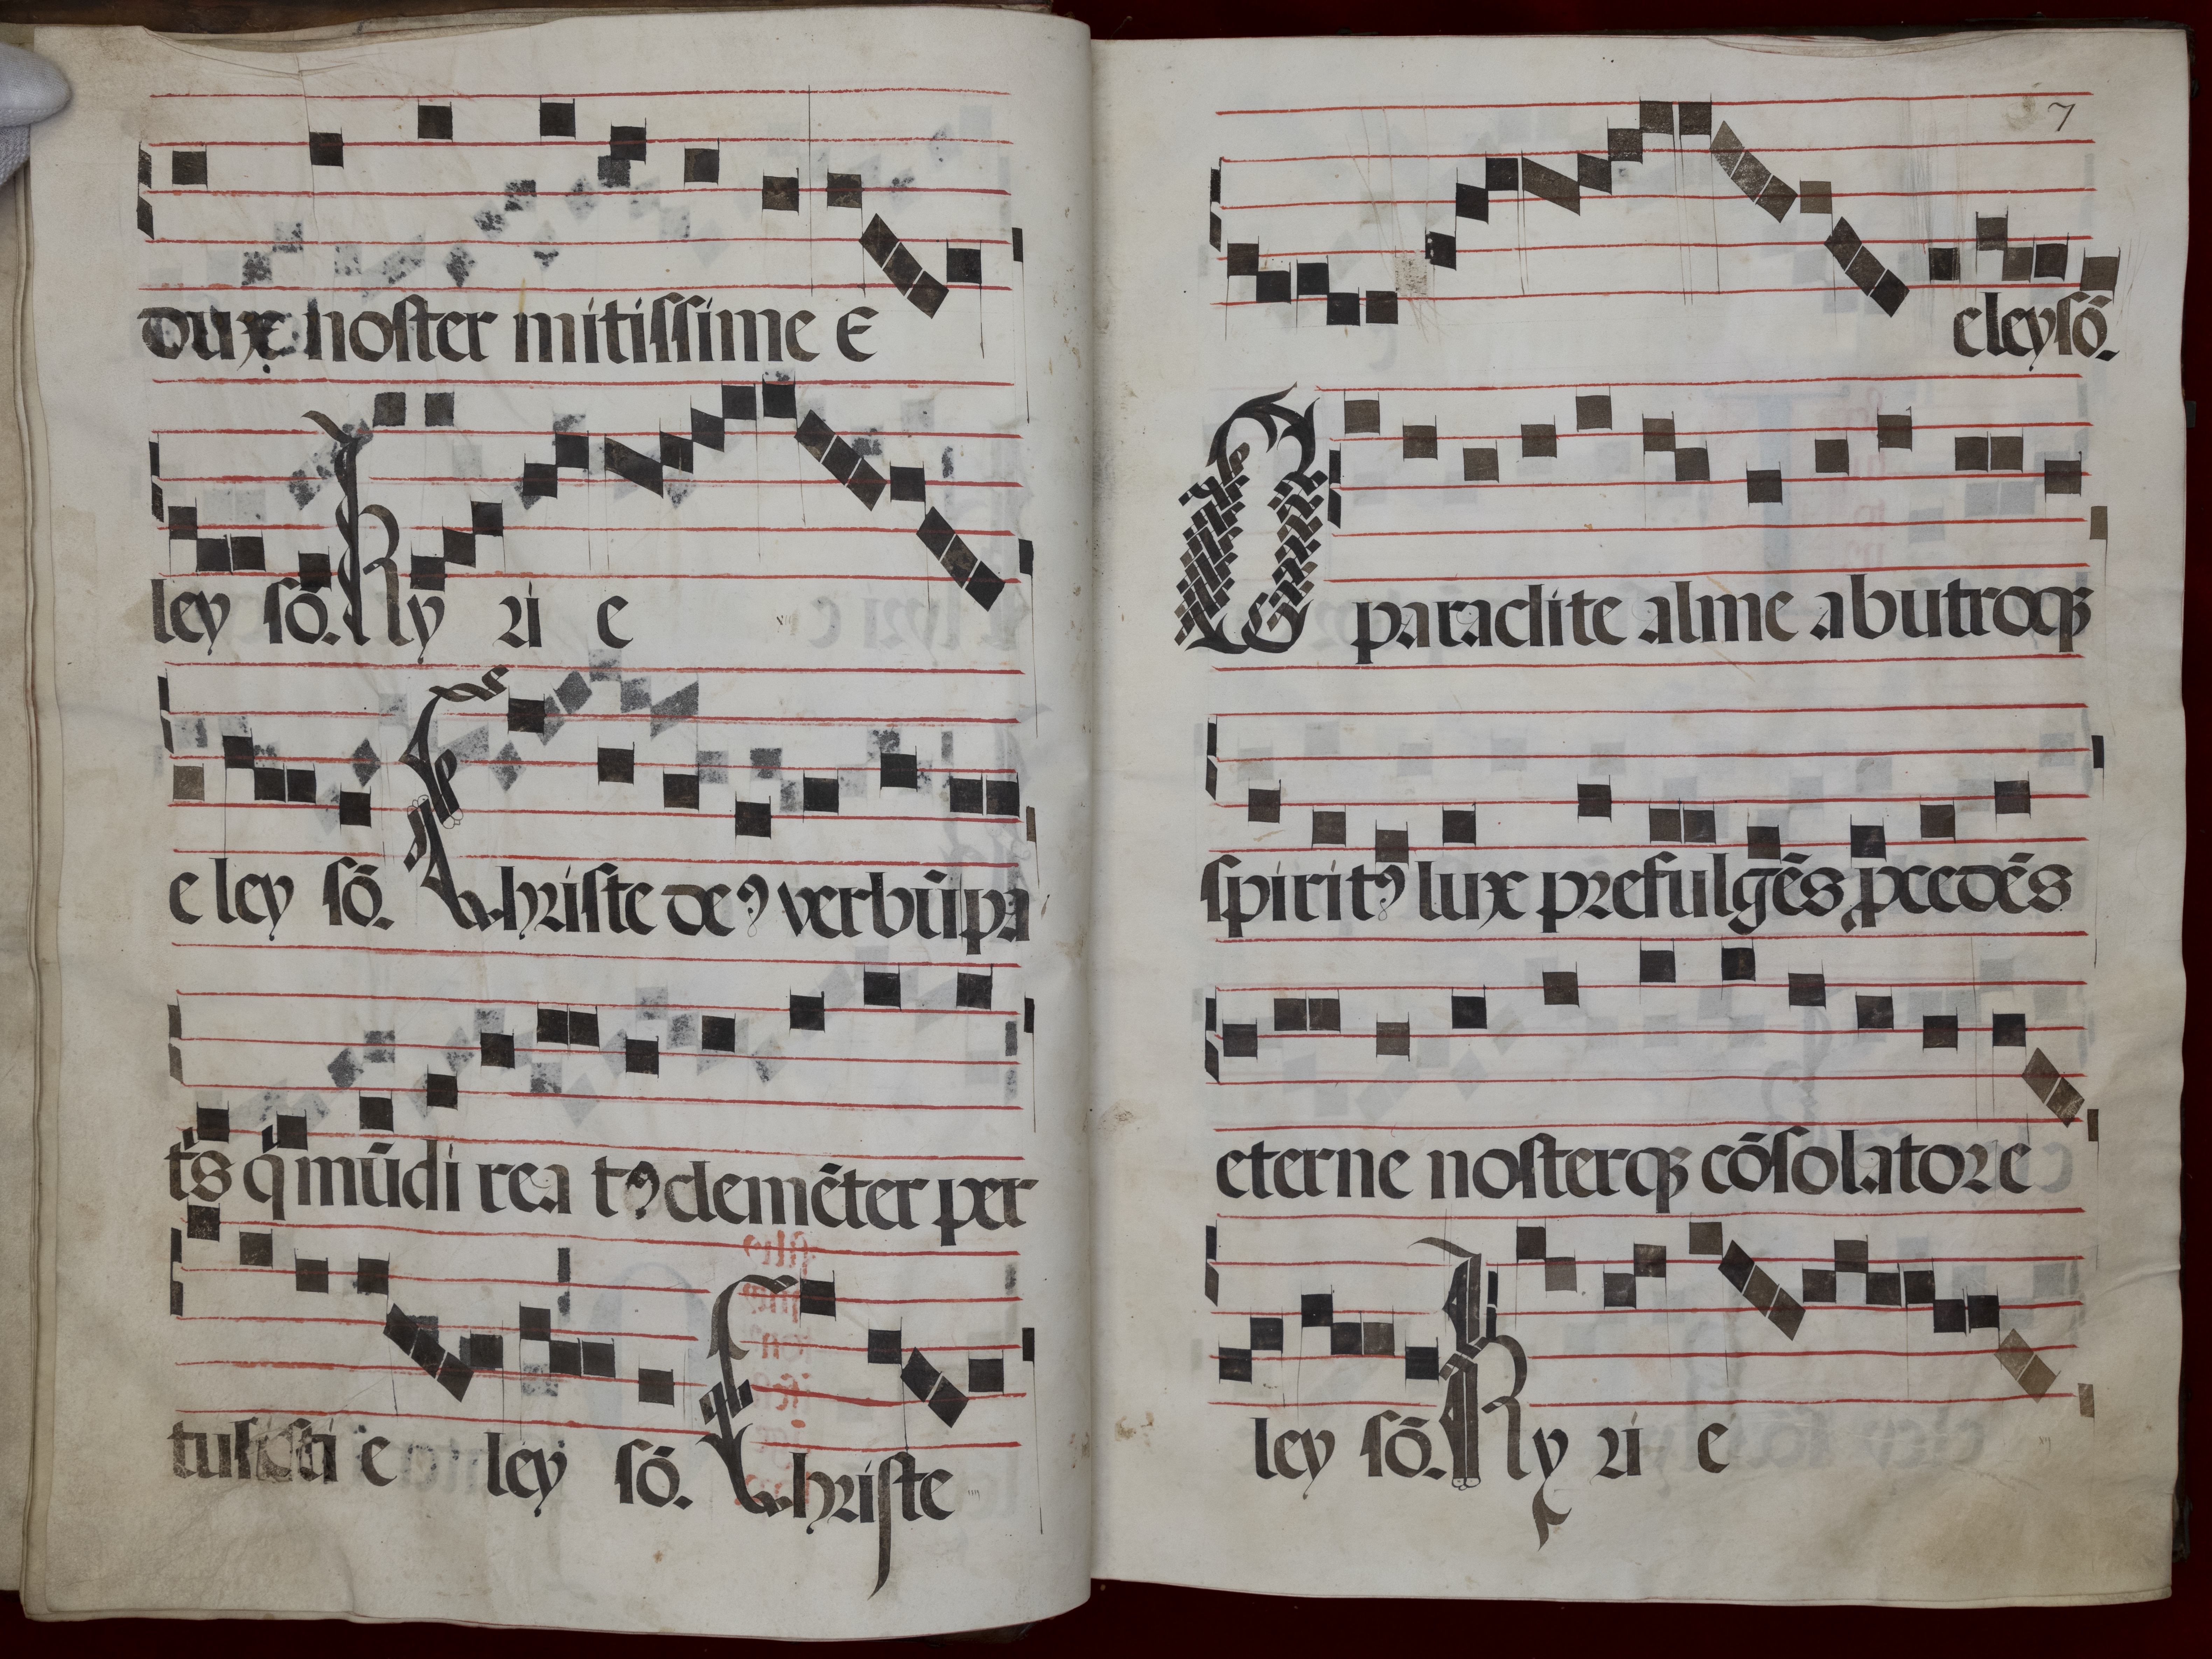 dux noster mitissime E
ley sō. Ky ri e
e ley sō. Christe deꝰ verbū pa
tīs q̄ mūdi rea tꝰ clemēter per
tulisti e ley sō. Christe
7
eleysō.
O paraclite alme ab utroqꝫ
spiritꝰ lux prefulgēs ꝓcedēs
eterne nosterqꝫ cōsolator e
ley sō. Ky ri e